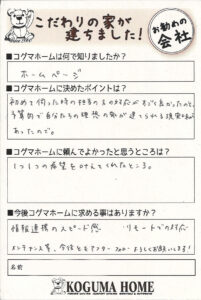 こだわりの家が
建ちました!
お勧めの
会社
■コグマホームは何で知りましたか?
ホームページ
■コグマホームに決めたポイントは?
初めて伺った時の担当の方の対応がすごく良かったのと、
予算内で自分たちの理想の家が建てられる
あったので。
■コグマホームに頼んでよかったと思うところは?
1つ1つの希望を叶えてくれたところ。
■今後コグマホームに求める事はありますか?
情報連携のスピード感 リモートでの対応
メンテナンス等、今後ともアフターフォローよろしくお願いします!
名前
KOGUMA HOME